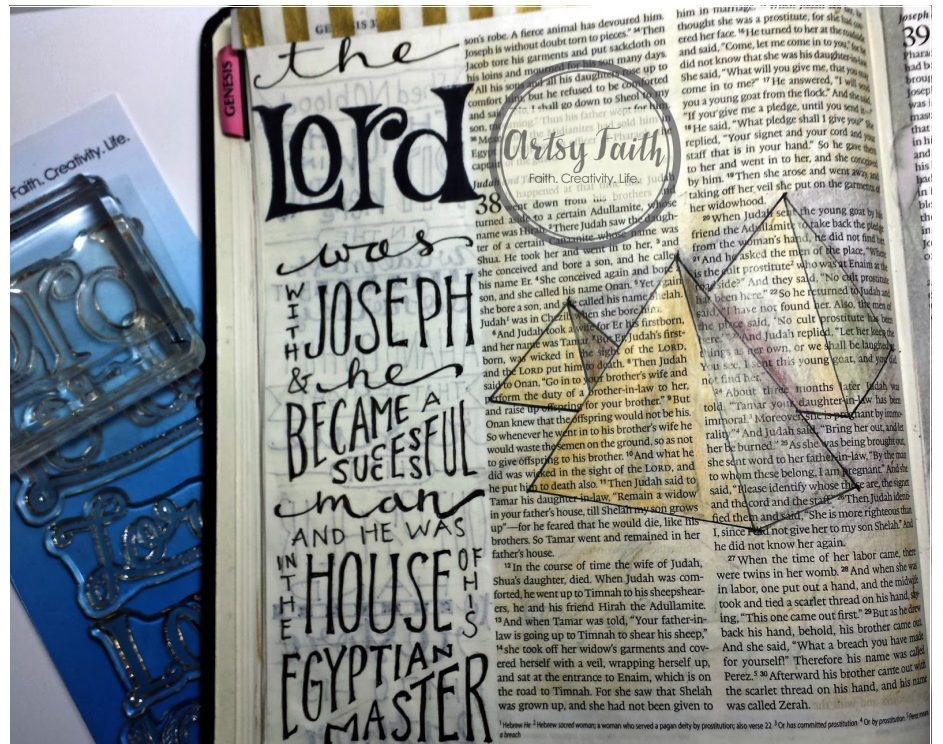 Faith. Creativity. Life.
GENESIS
GENESIS 3
the
Lord
was
WITH JOSEPH
& he
BECAME A
SUCESSFUL
man
AND HE WAS
IN THE HOUSE OF HIS
EGYPTIAN
MASTER
Artsy Faith
Faith. Creativity. Life.
son's robe. A fierce animal has devoured him.
Joseph is without doubt torn to pieces." 34 Then
Jacob tore his garments and put sackcloth on
his loins and mourned for his son many days.
All his sons and all his daughters rose up to
comfort him, but he refused to be comforted
and said, I shall go down to Sheol to my
son, Thus his father wept for him.
Judah and
38 happened at that
went down from his brothers and
turned aside to a certain Adullamite, whose
name was Hirah. 2 There Judah saw the daugh-
ter of a certain Canaanite whose name was
Shua. He took her and went in to her, 3 and
she conceived and bore a son, and he called
his name Er. 4 She conceived again and bore a
son, and she called his name Onan. 5 Yet again
she bore a son, and she called his name Shelah.
Judah was in Chezib when she bore him.
6 And Judah took a wife for Er his firstborn,
and her name was Tamar. 7 But Er, Judah's first-
born, was wicked in the sight of the LORD,
and the LORD put him to death. 8 Then Judah
said to Onan, "Go in to your brother's wife and
perform the duty of a brother-in-law to her,
and raise up offspring for your brother." 9 But
Onan knew that the offspring would not be his.
So whenever he went in to his brother's wife he
would waste the semen on the ground, so as not
to give offspring to his brother. 10 And what he
did was wicked in the sight of the LORD, and
he put him to death also. 11 Then Judah said to
Tamar his daughter-in-law, "Remain a widow
in your father's house, till Shelah my son grows
up"—for he feared that he would die, like his
brothers. So Tamar went and remained in her
father's house.
12 In the course of time the wife of Judah,
Shua's daughter, died. When Judah was com-
forted, he went up to Timnah to his sheepshear-
ers, he and his friend Hirah the Adullamite.
13 And when Tamar was told, "Your father-in-
law is going up to Timnah to shear his sheep,"
14 she took off her widow's garments and cov-
ered herself with a veil, wrapping herself up,
and sat at the entrance to Enaim, which is on
the road to Timnah. For she saw that Shelah
was grown up, and she had not been given to
him in marriage.
thought she was a prostitute, for she had cov-
ered her face. 16 He turned to her at the roadside
and said, "Come, let me come in to you," for he
did not know that she was his daughter-in-law.
She said, "What will you give me, that you may
come in to me?" 17 He answered, "I will send
you a young goat from the flock." And she said,
"If you give me a pledge, until you send it—"
18 He said, "What pledge shall I give you?" She
replied, "Your signet and your cord and your
staff that is in your hand." So he gave them
to her and went in to her, and she conceived
by him. 19 Then she arose and went away, and
taking off her veil she put on the garments of
her widowhood.
20 When Judah sent the young goat by his
friend the Adullamite to take back the pledge
from the woman's hand, he did not find her.
21 And he asked the men of the place, "Where
is the cult prostitute who was at Enaim at the
roadside?" And they said, "No cult prostitute
has been here." 22 So he returned to Judah and
said, "I have not found her. Also, the men of
the place said, 'No cult prostitute has been
here.'" 23 And Judah replied, "Let her keep the
things as her own, or we shall be laughed
at. You see, I sent this young goat, and you did
not find her."
24 About three months later Judah was
told, "Tamar your daughter-in-law has been
immoral. Moreover, she is pregnant by immo-
rality." And Judah said, "Bring her out, and let
her be burned." 25 As she was being brought out,
she sent word to her father-in-law, "By the man
to whom these belong, I am pregnant." And she
said, "Please identify whose these are, the signet
and the cord and the staff." 26 Then Judah identi-
fied them and said, "She is more righteous than
I, since I did not give her to my son Shelah." And
he did not know her again.
27 When the time of her labor came, there
were twins in her womb. 28 And when she was
in labor, one put out a hand, and the midwife
took and tied a scarlet thread on his hand, say-
ing, "This one came out first." 29 But as he drew
back his hand, behold, his brother came out.
And she said, "What a breach you have made
for yourself!" Therefore his name was called
Perez. 5 30 Afterward his brother came out with
the scarlet thread on his hand, and his name
was called Zerah.
1 Hebrew He 2 Hebrew sacred woman; a woman who served a pagan deity by prostitution; also verse 22 3 Or has committed prostitution 4 Or by prostitution 5 Perez means
a breach
Joseph
39